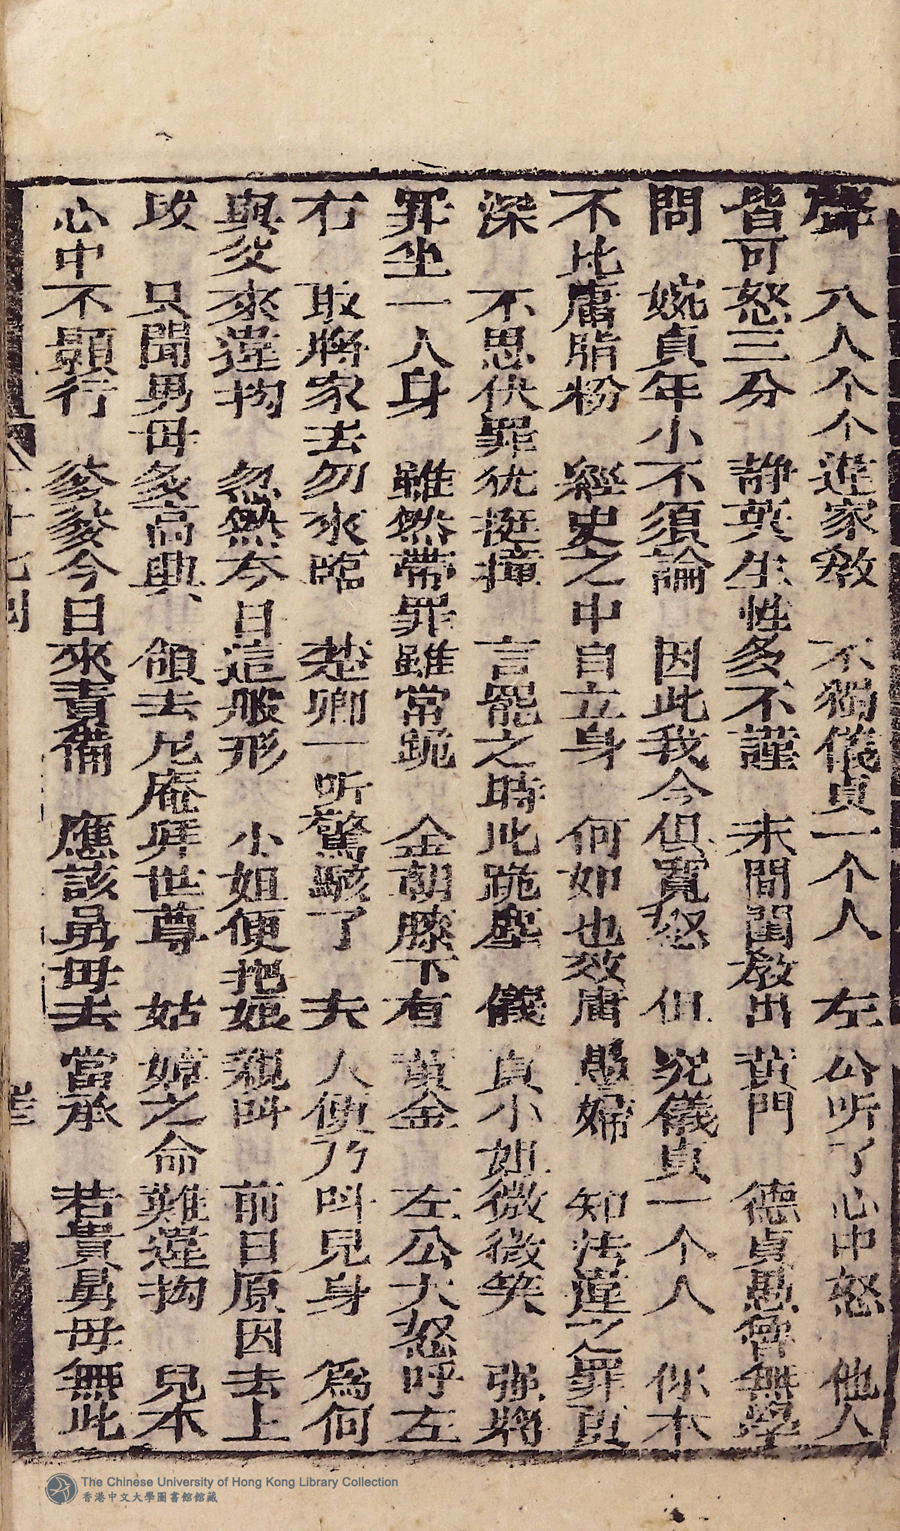 聲 八人个个遵家敎 不獨儀貞一个人 左公听了心中怒 他人
皆可恕三分 靜英生性多不謹 未閒閨敎出黃門 德貞愚魯無學
問 婉貞年小不須論 因此我今俱寬恕 但究儀貞一个人 你本
不比庸脂粉 經史之中自立身 何如也效庸愚婦 知法違之罪更
深 不思伏罪犹挺撞 言罷之時此跪塵 儀貞小姐微微笑 强將
罪坐一人身 雖然帶罪雖當跪 金朝膝下有黃金 左公大怒呼左
右 取將家去勿來臨 楚卿一听驚駭了 夫人便乃呌兒身 爲何
與父來違拗 忽然夲日這般形 小姐便把娘親呌 前日原因去上
坟 只聞男母多高興 領去尼庵拜世尊 姑嫜之命難違拗 兒本
心中不願行 爹爹今日來責備 應該舅母去當承 若責舅母無此